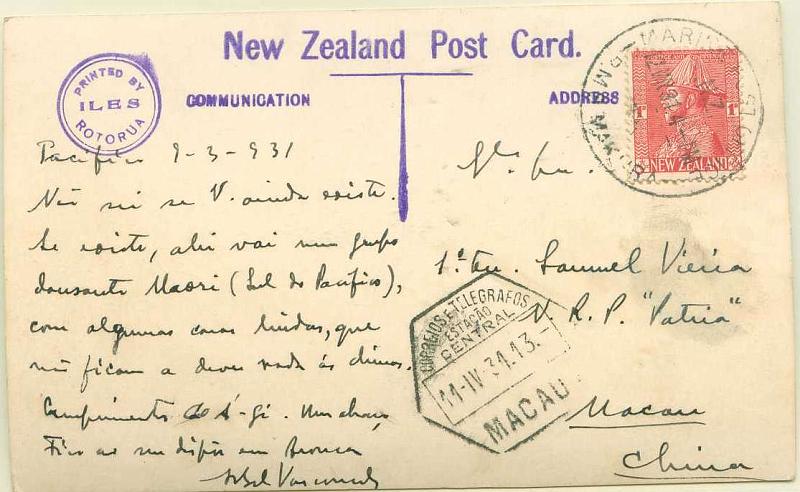 New Zealand Post Card.
PRINTED BY
ILES
ROTORUA
COMMUNICATION
ADDRESS
MARINE POST OFFICE
R.M.S. MAKURA
NEW ZEALAND
Pacifico 9-3-931
Não sei se V. ainda existe.
Se existe, ahi vai um grupo
dansante Maori (Sul do Pacifico),
com algumas caras lindas, que
não ficam a dever nada ás chinas.
Cumprimentos
Fico ao seu dispôr em
1º ten. Samuel Vieira
N. R. P. "Patria"
Macau
China
CORREIOS E TELEGRAFOS
ESTAÇÃO
CENTRAL
11-IV-31.13.
MACAU